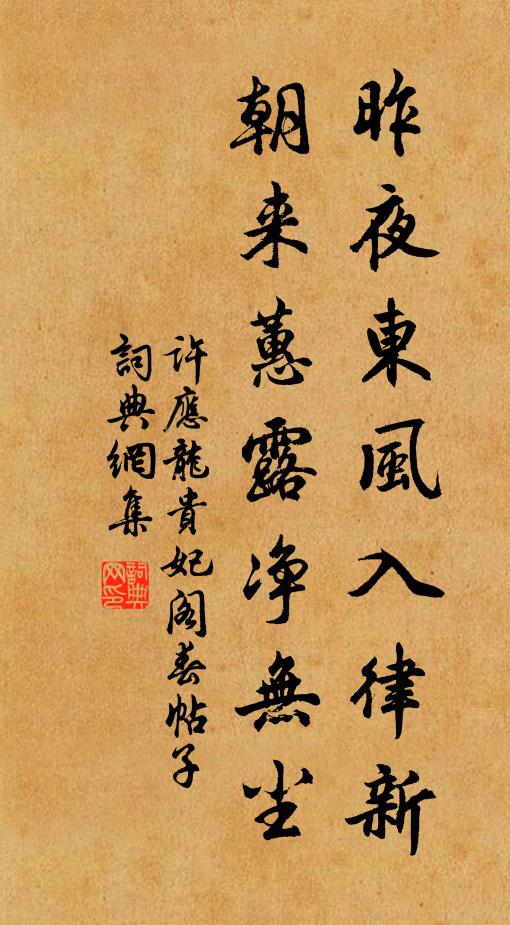 昨夜東風入律新
朝来蕙露净無尘
许應龍貴妃阁春帖子
詞典網集
詞典网印